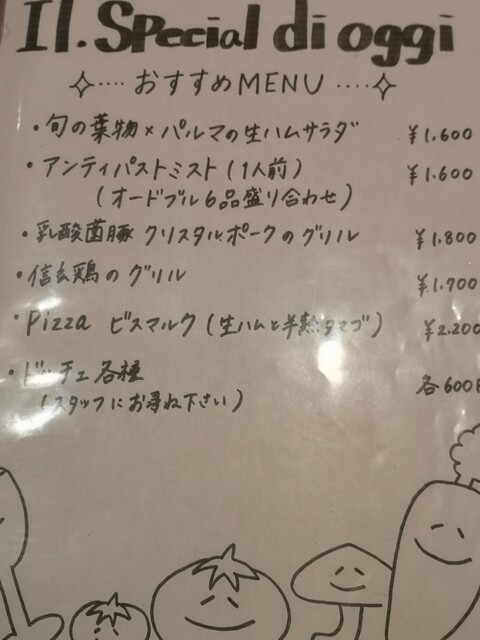 Il. Special di oggi
おすすめMENU
・旬の葉物×パルマの生ハムサラダ ¥1.600
・アンティパストミスト(1人前) ¥1.600
(オードブル6品盛り合わせ)
・乳酸菌豚 クリスタルポークのグリル ¥1.800
・信玄鶏のグリル ¥1.700
・Pizza ビスマルク(生ハムと半熟タマゴ) ¥2.200
・ドッチェ各種 各600円
(スタッフにお尋ね下さい)